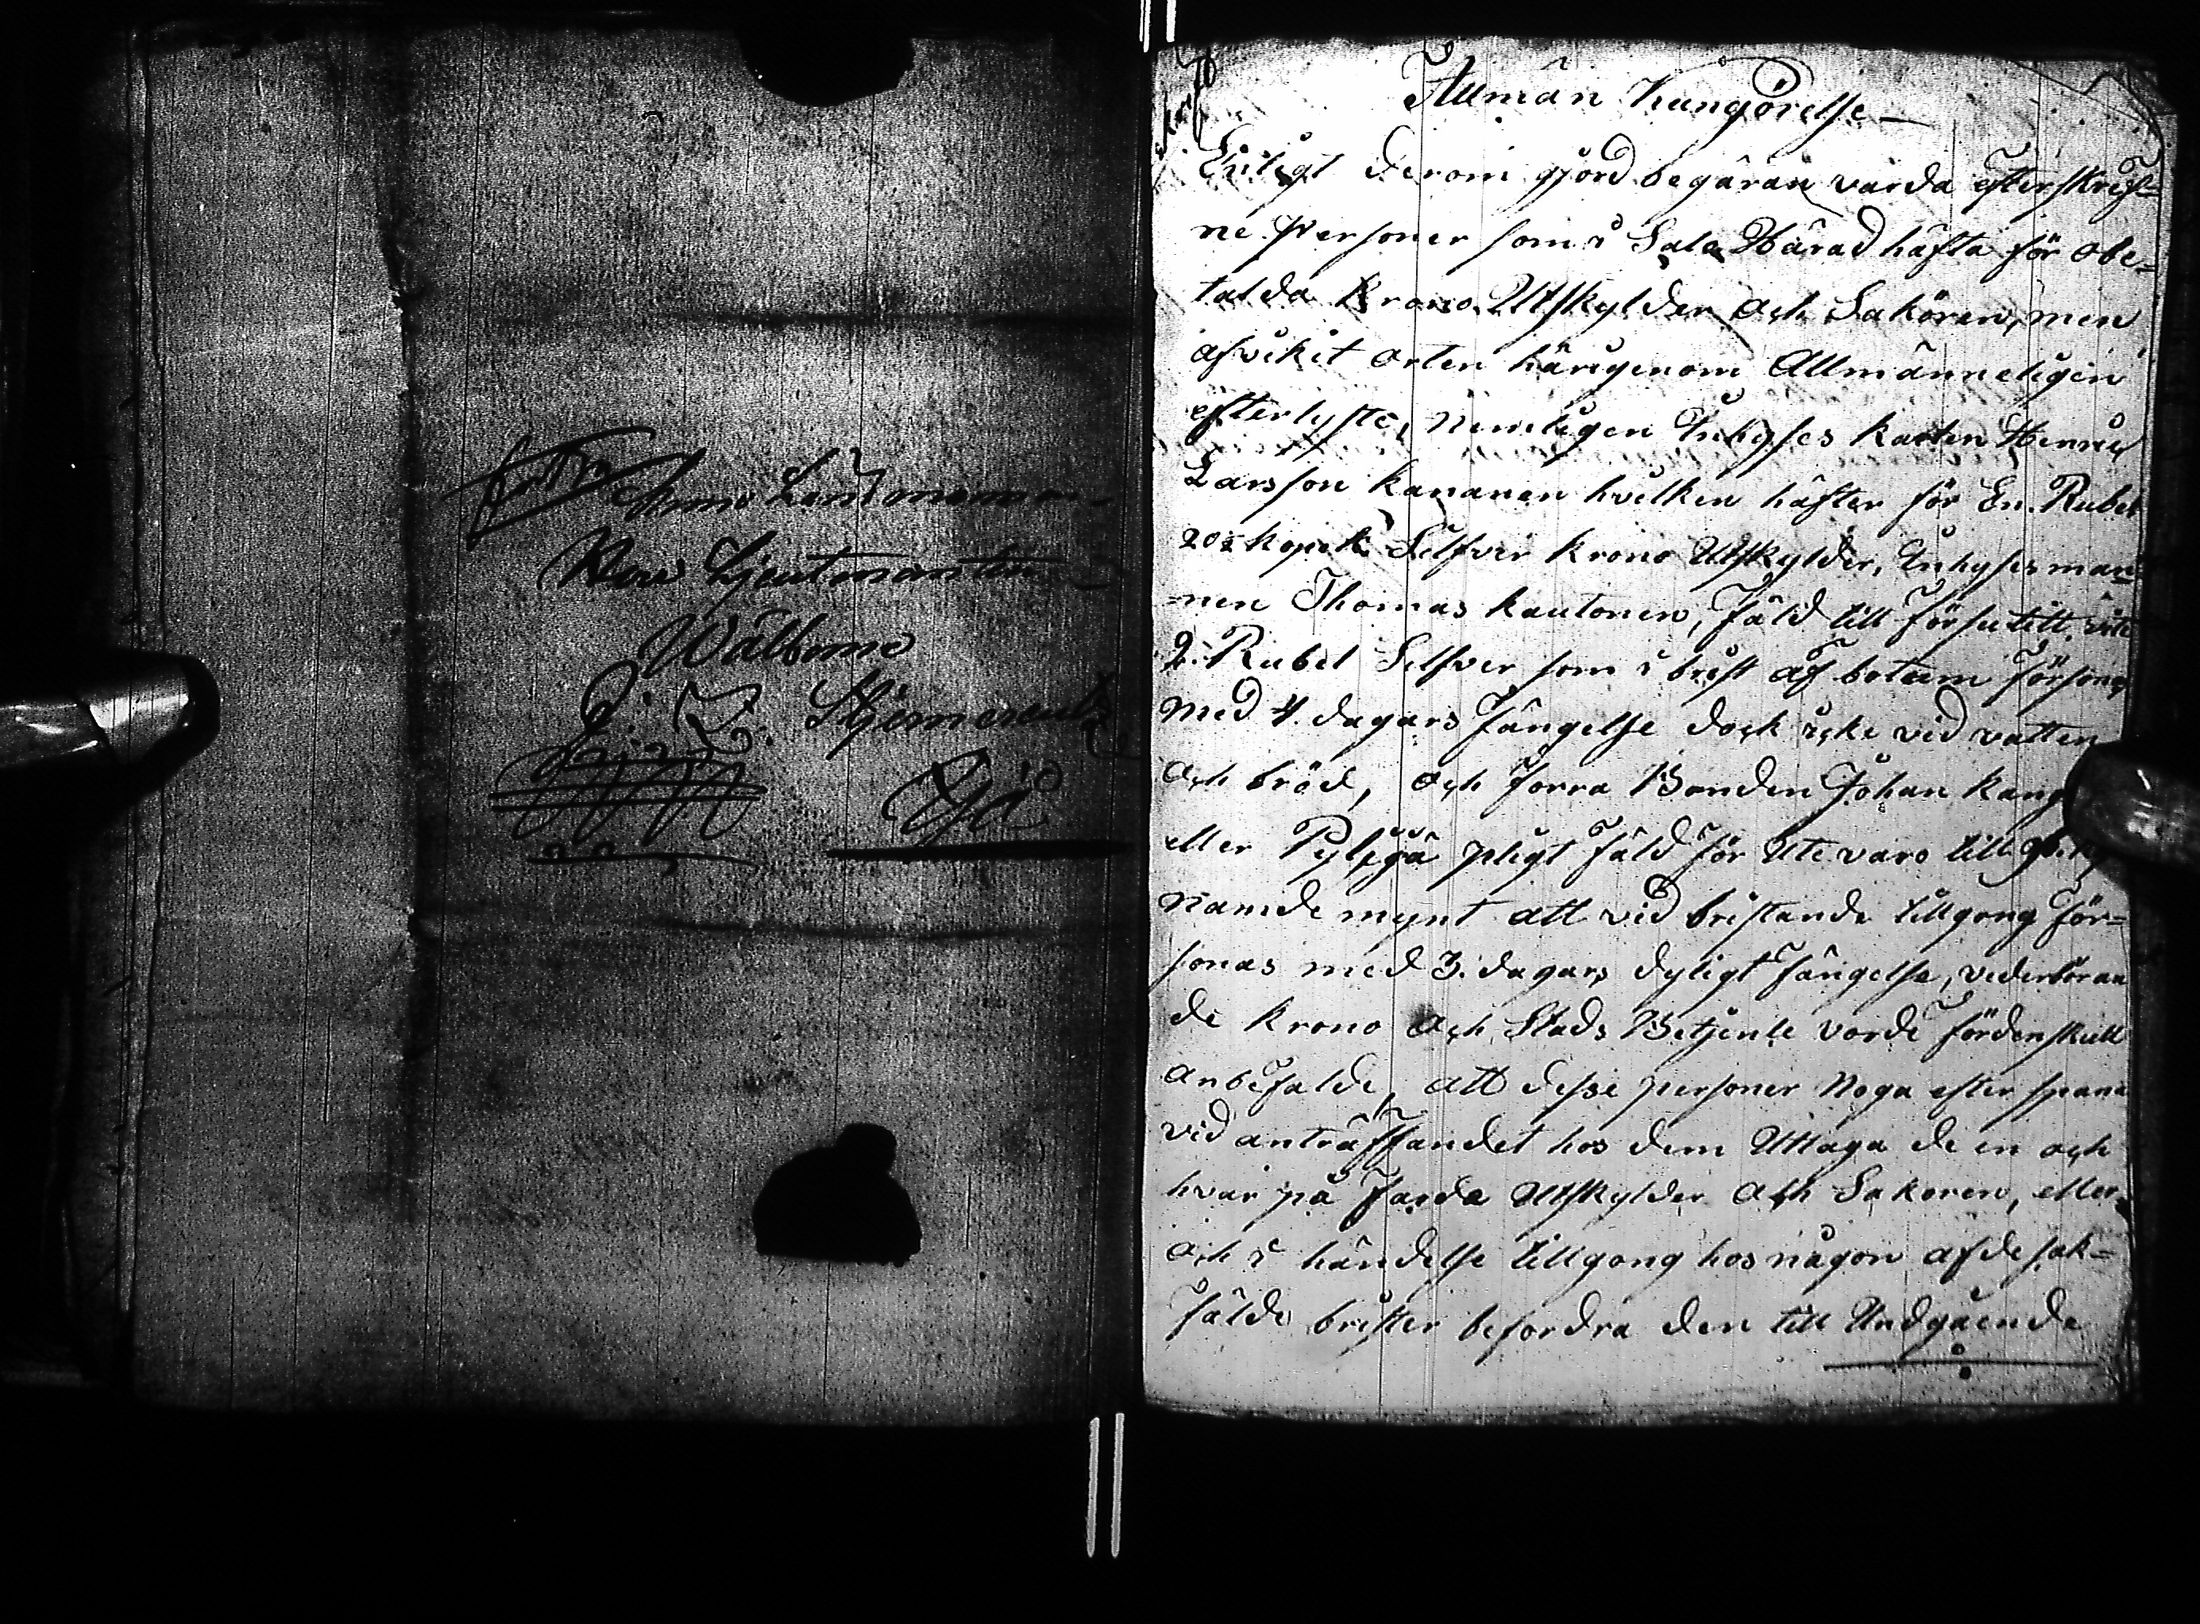 Krono Länsmannen
Herr Lieutmanten
Wälborne
Stjerncreutz
Esbo
Allmän Kungörelse
Enligt derom gjord begäran varda efterskref-
ne Personer som i Sala Härad häfta för obe-
talda Krono Utskylder och Sakören, men
afvikit orten härigenom Allmänneligen
efterlyste, nemeligen Inhyses karlen Henric
Larsson Kananen hvilken häfter för En Rubel
20 kopek Silfver Krono Utskylder, Inhyses man
nen Thomas Kautonen, fäld till försutitt vite
2 Rubel Silfver som i brist af botum försonas
med 4. dagars fängelse dock icke vid vatten
och bröd, och förra Bonden Johan Kang
eller Pyljyä pligt fäld för Utevaro till
namde mynt att vid bristande tillgong för-
sonas med 3. dagars dyligt fängelse, vederböran
de Krono och Stads Betjente vorde fördenskull
anbefalde, att desse personer noga efter spana
vid anträffandet hos dem Uttaga de en och
hvar på förde Utskylder och Sakören, eller
och i händelse tillgong hos någon af de sak-
fälde brister befordra den till Undgående